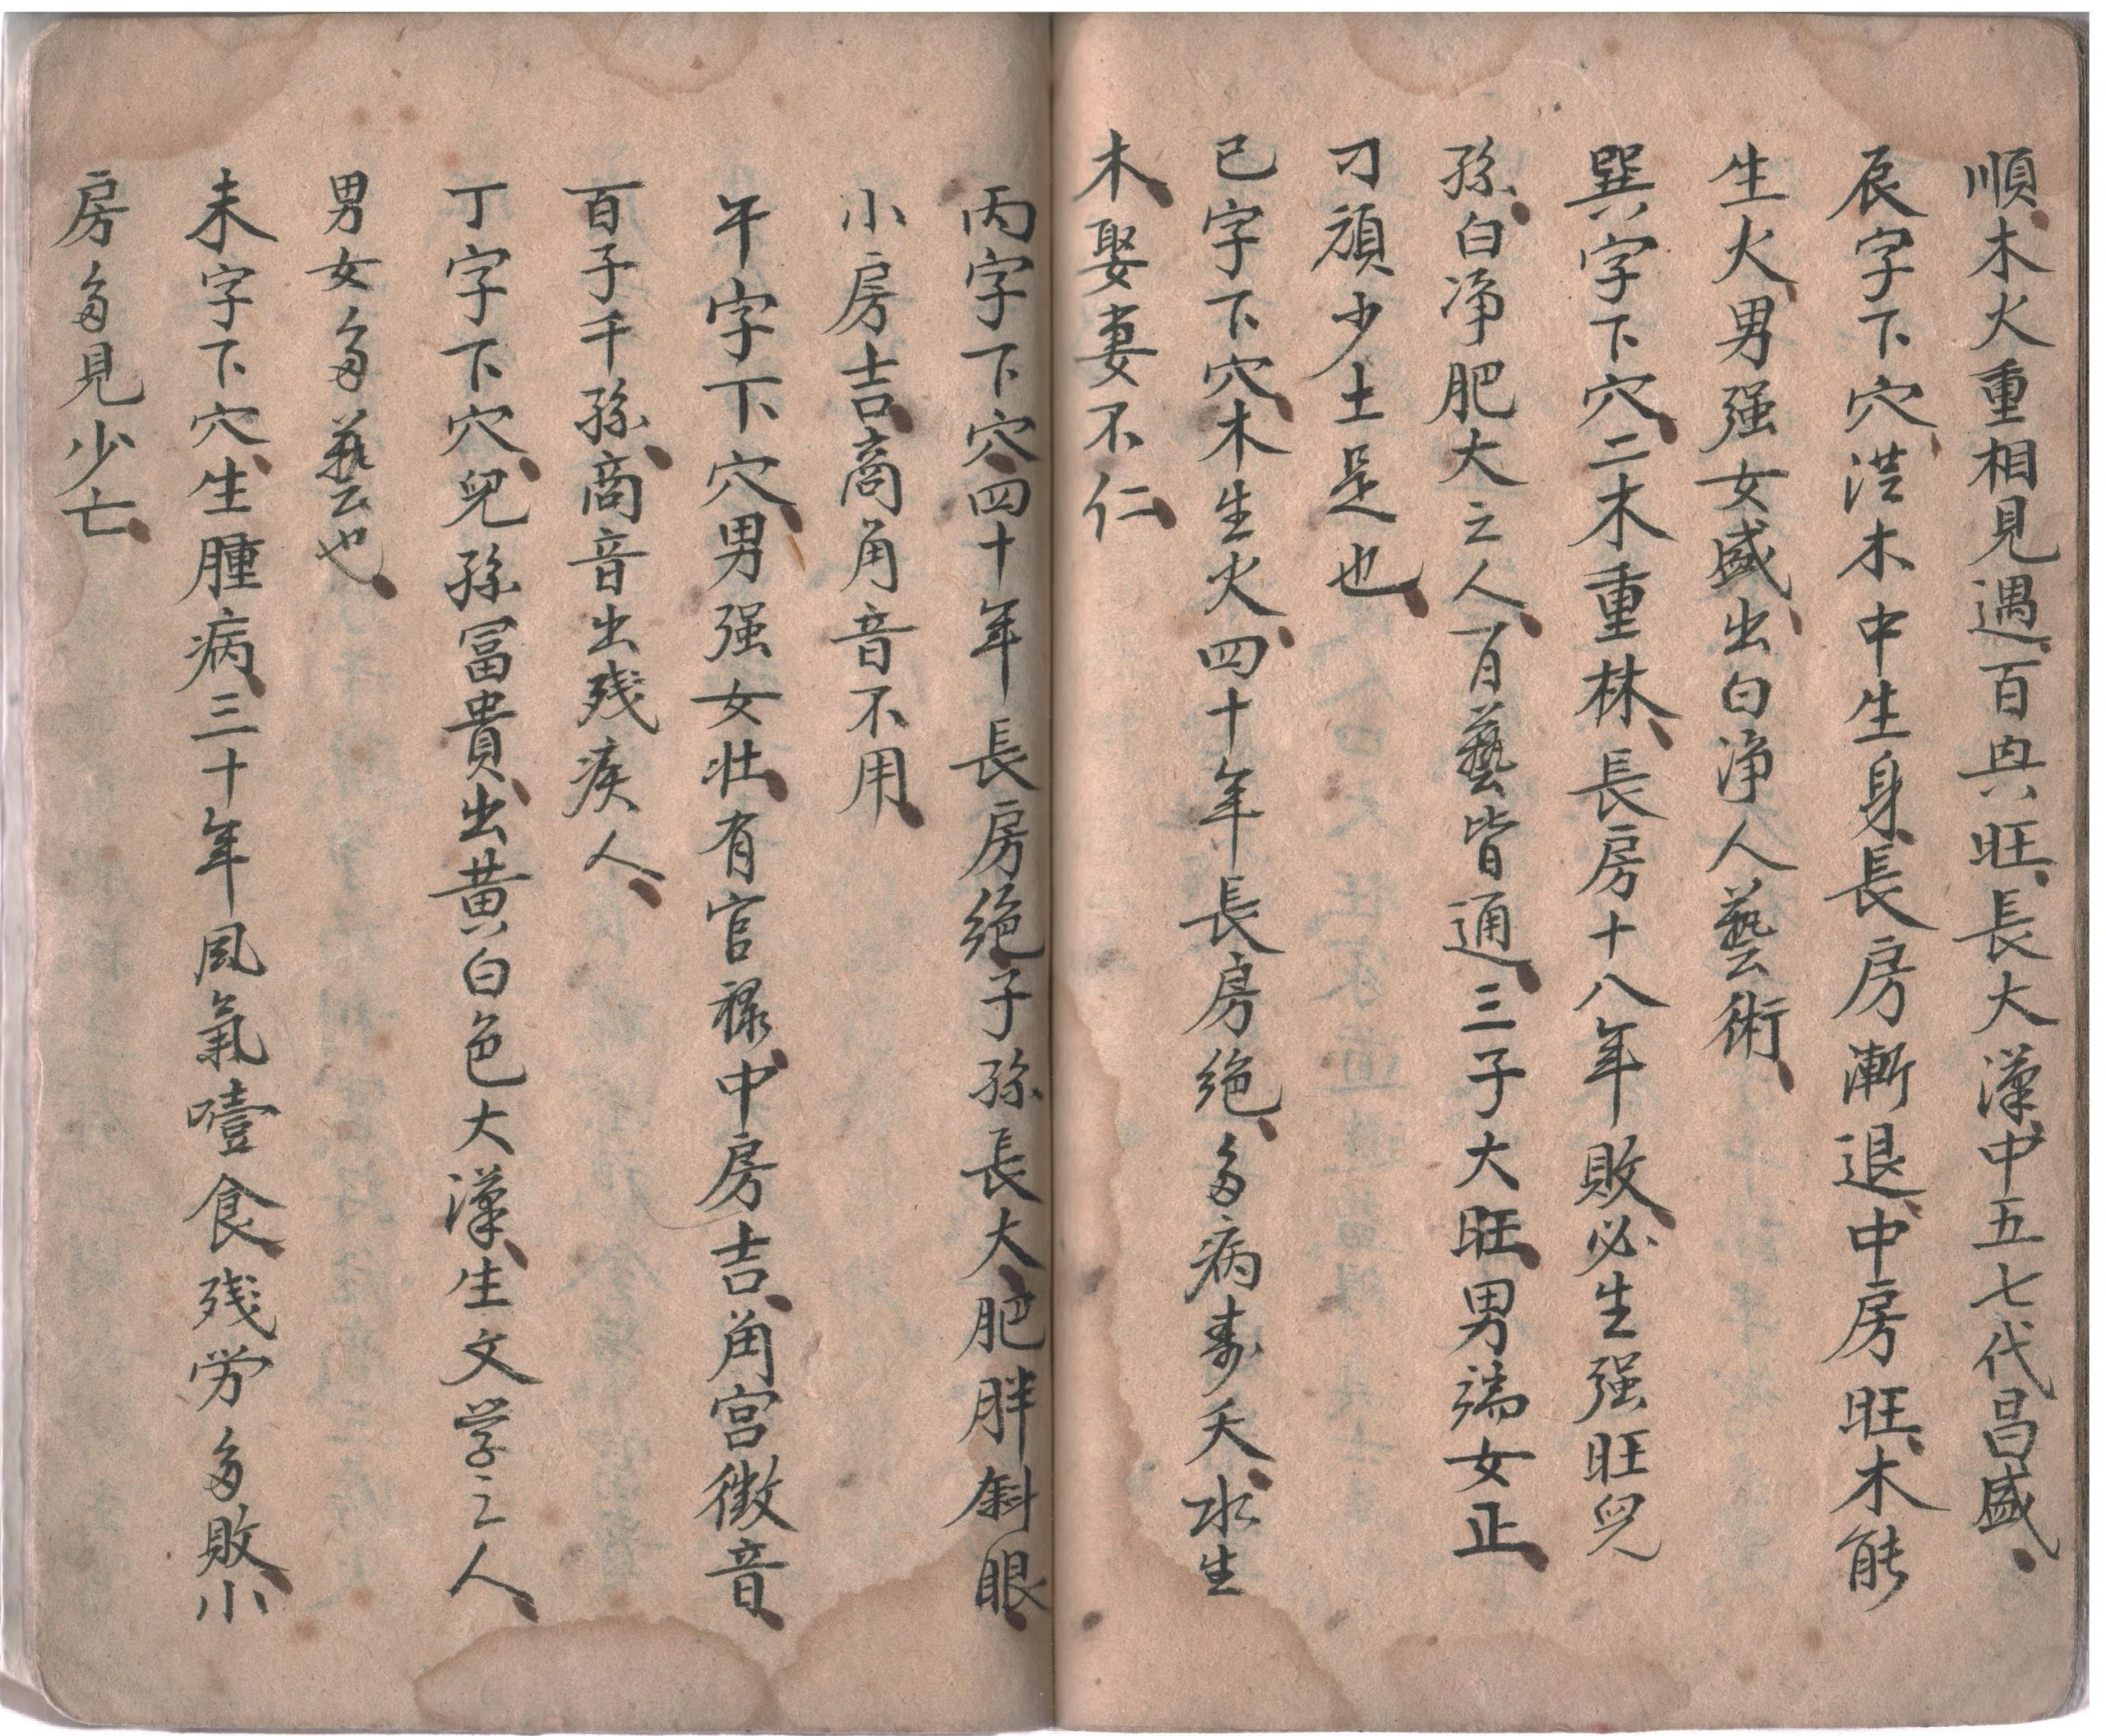 順木火重相見遇百與旺長大漢中五七代昌盛
辰字下穴洪木中生身長房漸退中房旺木能
生火男强女盛出白净人藝術
巽字下穴二木重林長房十八年敗必生强旺兒
孫白净肥大之人百藝皆通三子大旺男端女正
刁頑少土是也
巳字下穴木生火四十年長房绝多病寿夭水生
木娶妻不仁
丙字下穴四十年長房绝子孫長大肥胖斜眼
小房吉商角音不用
午字下穴男强女壮有官禄中房吉角宫徵音
百子千孫商音出残疾人
丁字下穴兒孫冨貴出黄白色大漢生文学之人
男女多藝也
未字下穴生腫病三十年風氣噎食残劳多敗小
房多見少亡